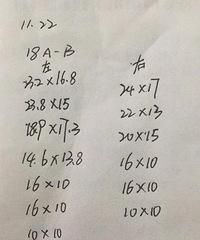 11.22
18A-B
左 右
23.2×16.8 24×17
23.8×15 22×13
18.9×17.3 20×15
14.6×13.8 16×10
16×10 16×10
16×10 10×10
10×10